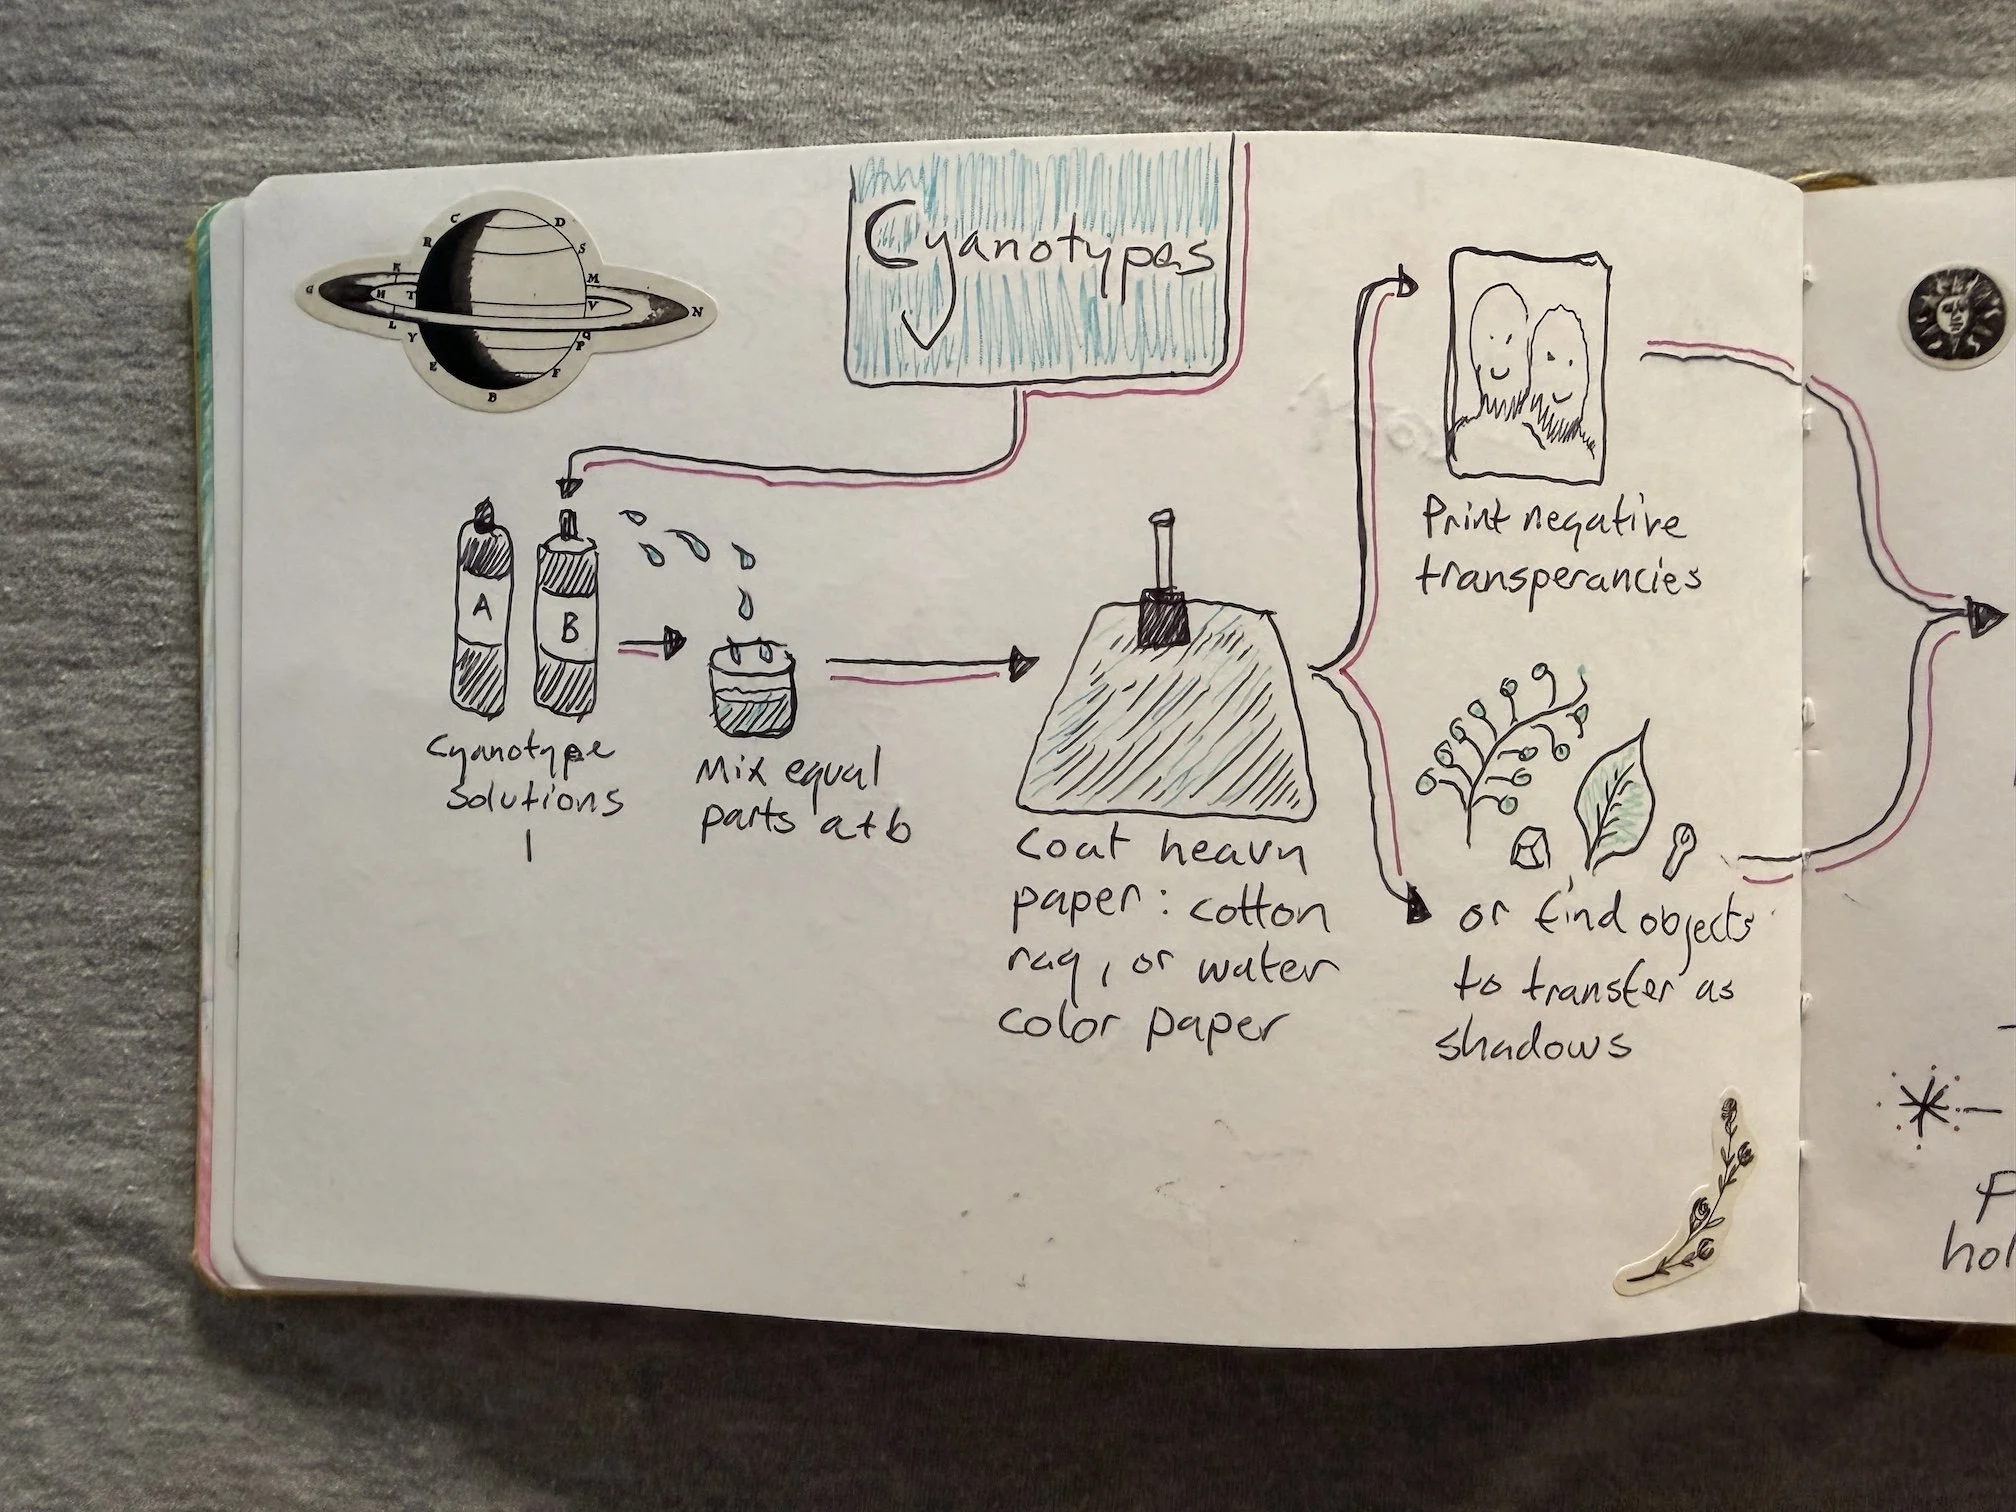 Cyanotypes
A
B
Cyanotype
Solutions
Mix equal
parts a+b
Coat heavy
paper: cotton
rag, or water
color paper
Print negative
transperancies
or find objects
to transfer as
shadows
C
D
R
S
K
M
G
H
T
V
N
L
Y
Q
P
E
F
B